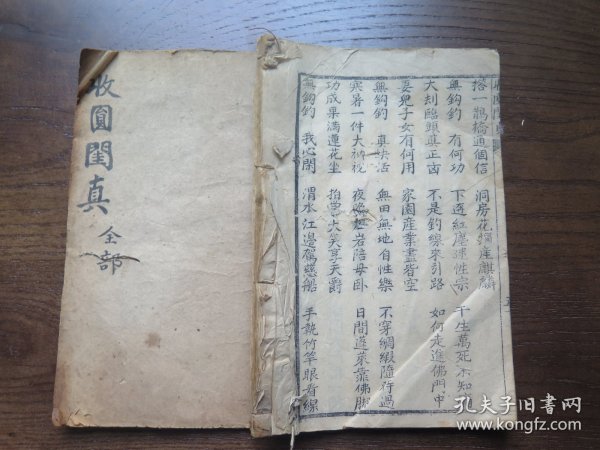 收圓闡真
全部
搭一鵲橋通個信 洞房花燭產麒麟
無鈎釣 有何功 下逐紅塵迷性宗 千生萬死不知
大刦臨頭真正凶 不是釣線來引路 如何走進佛門中
妻兒子女有何用 家園產業盡皆空
無鈎釣 真快活 無田無地自性樂 不穿綢緞隨行過
寒暑一件大衲袄 夜晚 岩陪母卧 日間蓬萊靠佛脚
功成果滿蓮花坐 拍 大笑享天爵
無鈎釣 我心閑 渭水江邊駕慈船 手執竹竿眼看線
孔夫子旧书网
www.kongfz.com